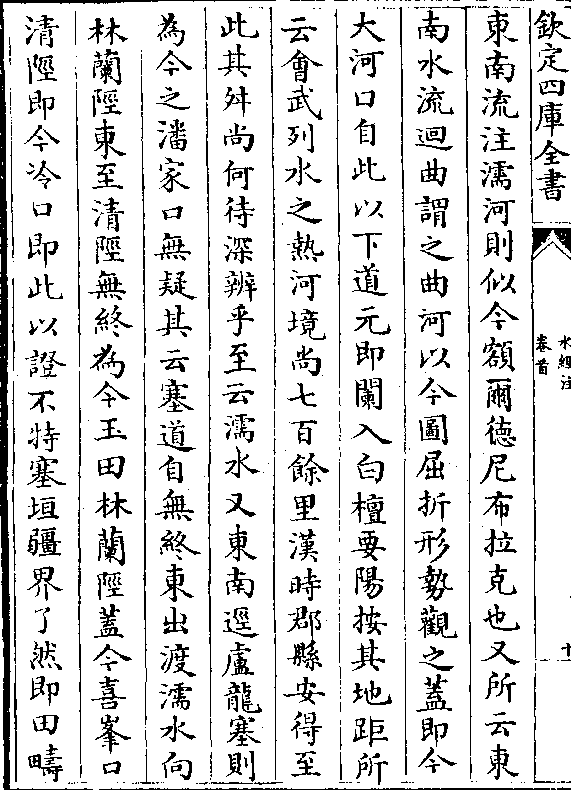 欽定四庫全書
水經注
卷首
十
東南流注濡河則似今額爾德尼布拉克也又所云東
南水流迴曲謂之曲河以今圖屈折形勢觀之蓋即今
大河口自此以下道元即闌入白檀要陽按其地距所
云會武列水之熱河境尚七百餘里漢時郡縣安得至
此其舛尚何待深辨乎至云濡水又東南逕盧龍塞則
為今之潘家口無疑其云塞道自無終東出渡濡水向
林蘭陘東至清陘無終為今玉田林蘭陘蓋今喜峯口
清陘即今冷口即此以證不特塞垣疆界了然即田疇